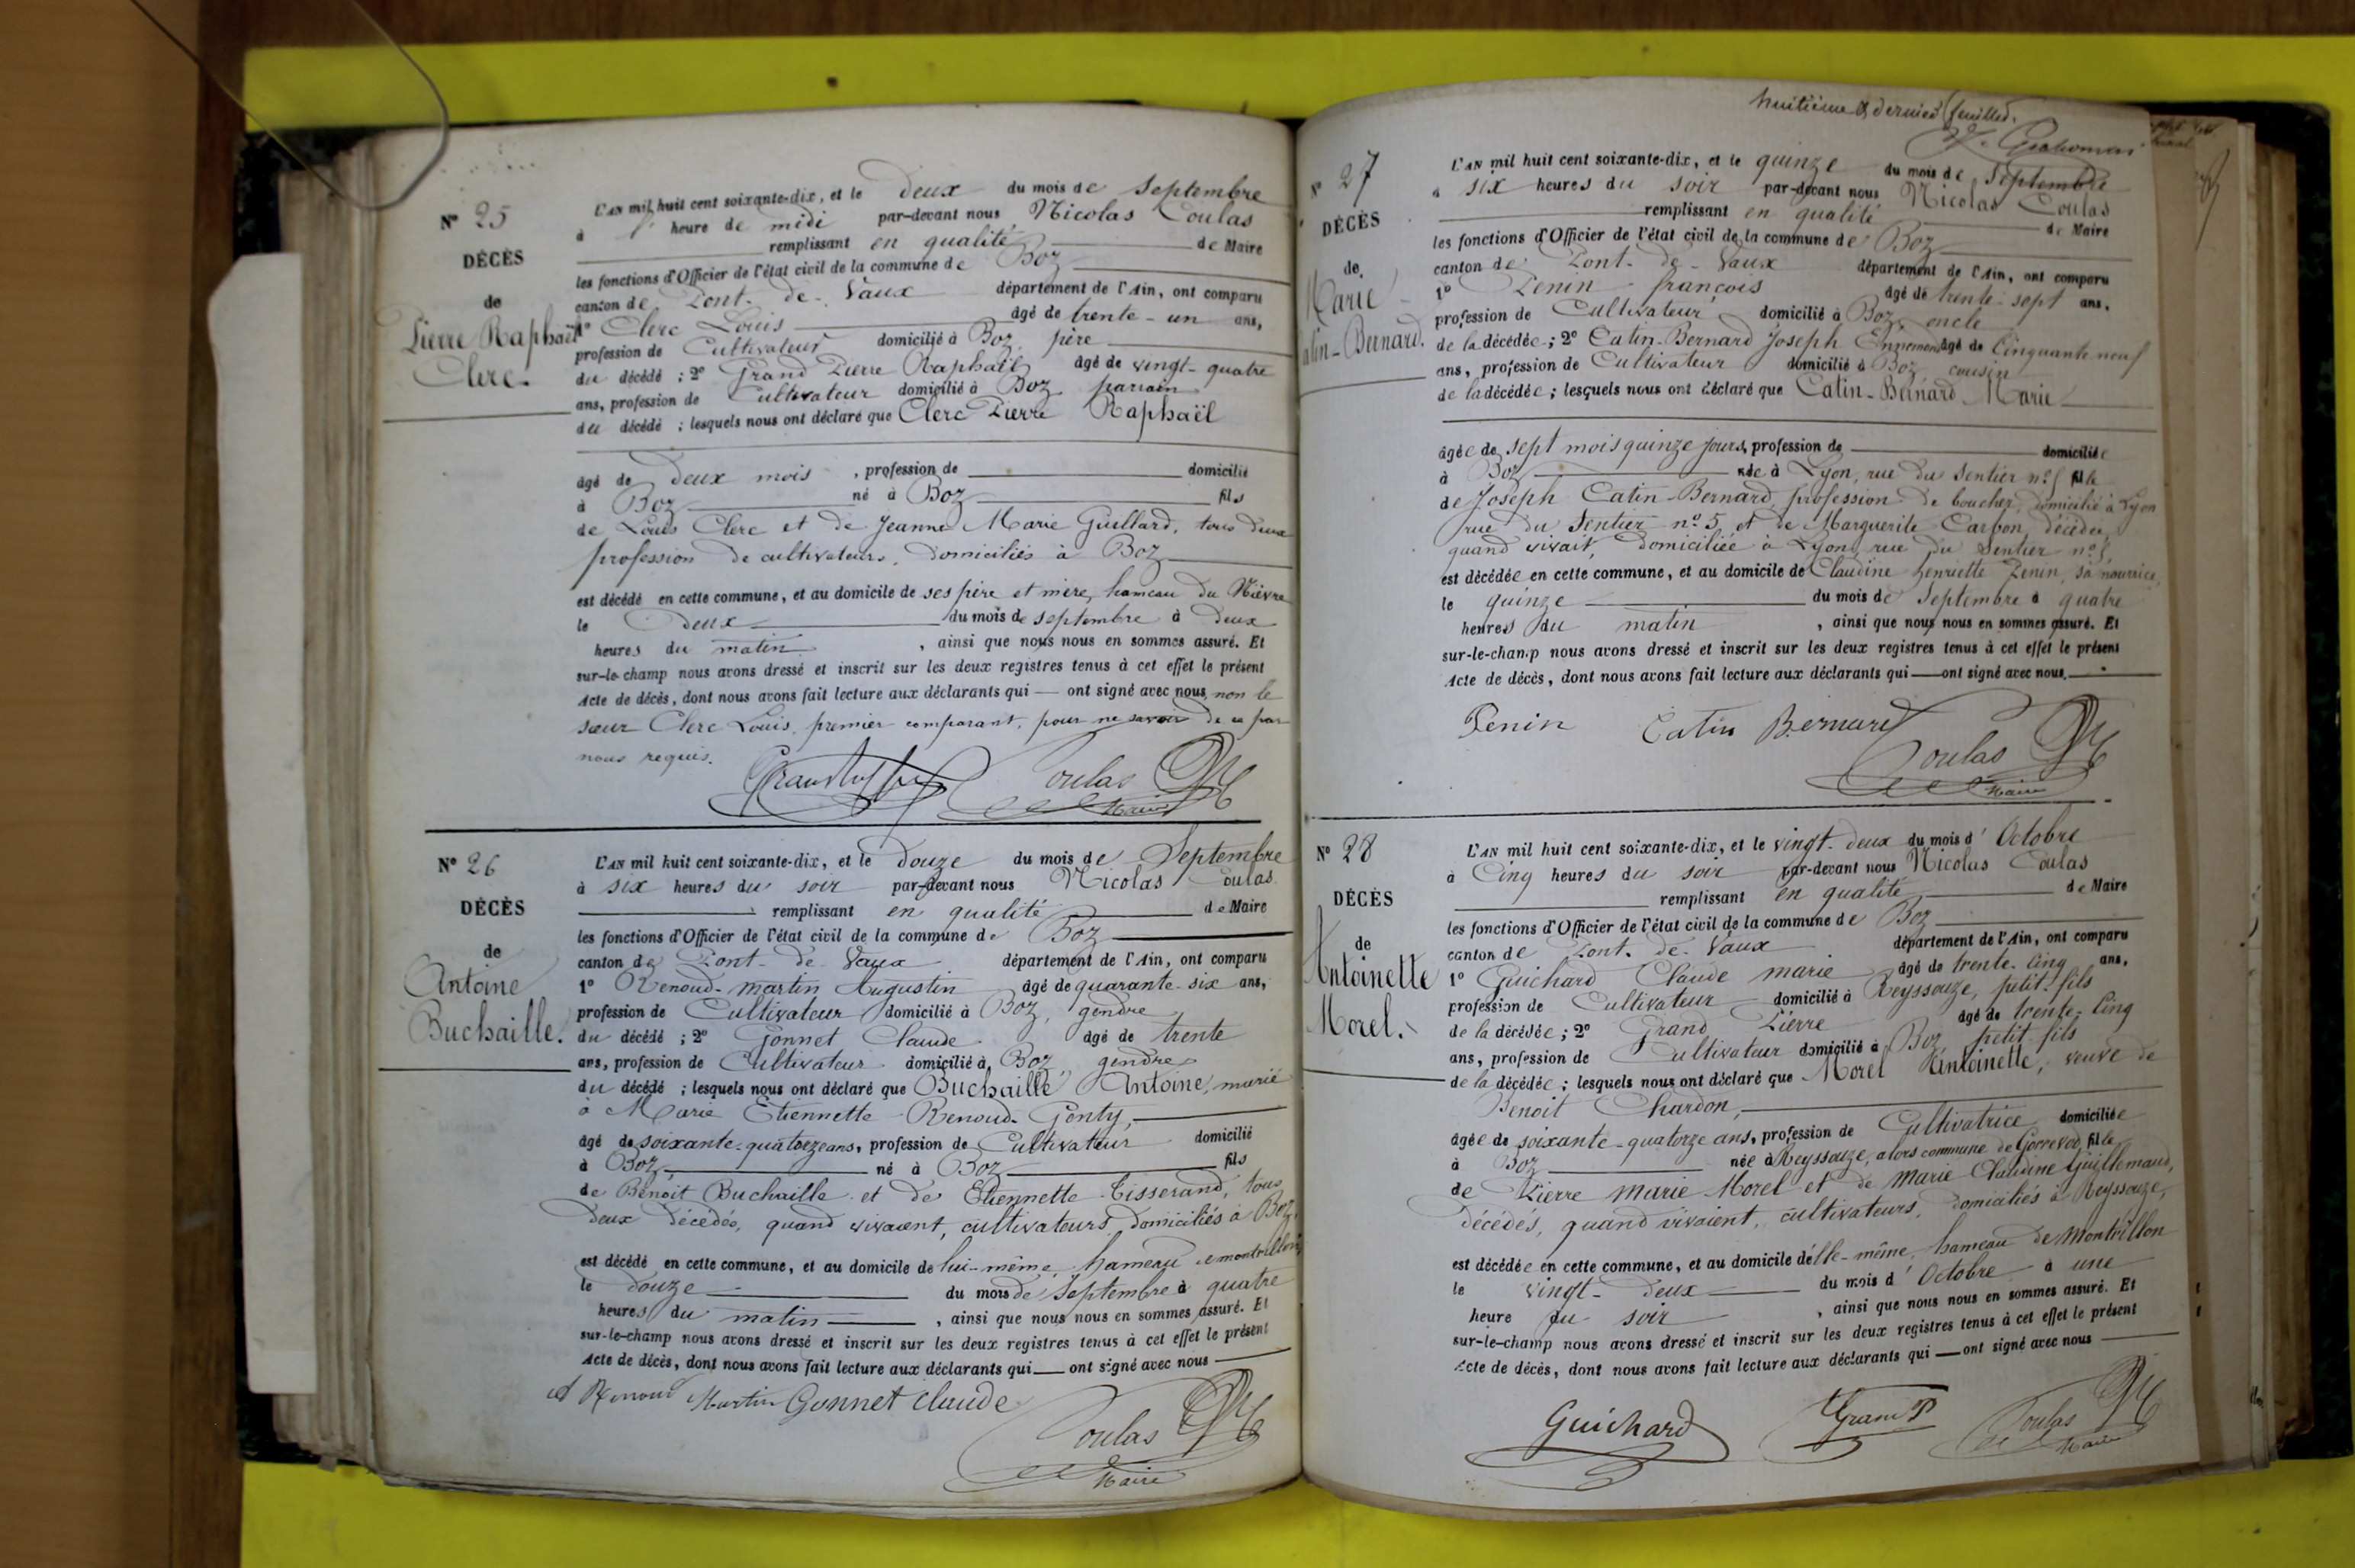 N° 25
DÉCÈS
de
Pierre Raphaël
Clerc.
L'AN mil huit cent soixante-dix, et le deux du mois de Septembre
à heure de midi par-devant nous Nicolas Coulas
remplissant en qualité de Maire
les fonctions d'Officier de l'état civil de la commune de Boz
canton de Pont-de-Vaux département de l'Ain, ont comparu
1° Clerc Louis âgé de trente-un ans,
profession de Cultivateur domicilié à Boz, père
du décédé ; 2° Grand Pierre Raphaël âgé de vingt-quatre
ans, profession de Cultivateur domicilié à Boz parrain
du décédé ; lesquels nous ont déclaré que Clerc Pierre Raphaël
âgé de deux mois, profession de domicilié
à Boz né à Boz fils
de Louis Clerc et de Jeanne Marie Guillard, tous deux
profession de cultivateurs, domiciliés à Boz
est décédé en cette commune, et au domicile de ses père et mère, hameau du Nièvre
le deux du mois de septembre à deux
heures du matin, ainsi que nous nous en sommes assuré. Et
sur-le-champ nous avons dressé et inscrit sur les deux registres tenus à cet effet le présent
Acte de décès, dont nous avons fait lecture aux déclarants qui — ont signé avec nous, non le
sieur Clerc Louis, premier comparant, pour ne savoir de ce par
nous requis.
Coulas
Maire
N° 26
DÉCÈS
de
Antoine
Buchaille.
L'AN mil huit cent soixante-dix, et le douze du mois de Septembre
à six heures du soir par-devant nous Nicolas Coulas
remplissant en qualité de Maire
les fonctions d'Officier de l'état civil de la commune de Boz
canton de Pont-de-Vaux département de l'Ain, ont comparu
1° Renoud-Martin Augustin âgé de quarante-six ans,
profession de Cultivateur domicilié à Boz, gendre
du décédé ; 2° Gonnet Claude âgé de trente
ans, profession de Cultivateur domicilié à Boz gendre
du décédé ; lesquels nous ont déclaré que Buchaille Antoine, marié
à Marie Etiennette Renoud-Genty,
âgé de soixante-quatorze ans, profession de Cultivateur domicilié
à Boz, né à Boz fils
de Benoît Buchaille et de Etiennette Tisserand, tous
deux décédés, quand vivaient, cultivateurs, domiciliés à Boz,
est décédé en cette commune, et au domicile de lui-même, hameau de montrillon
le douze du mois de Septembre à quatre
heures du matin, ainsi que nous nous en sommes assuré. Et
sur-le-champ nous avons dressé et inscrit sur les deux registres tenus à cet effet le présent
Acte de décès, dont nous avons fait lecture aux déclarants qui — ont signé avec nous
A Renoud Martin Gonnet Claude
Coulas
Maire
huitième & dernier feuillet.
N° 27
DÉCÈS
de
Marie
Catin-Bernard.
L'AN mil huit cent soixante-dix, et le quinze du mois de Septembre
à six heures du soir par-devant nous Nicolas Coulas
remplissant en qualité de Maire
les fonctions d'Officier de l'état civil de la commune de Boz
canton de Pont-de-Vaux département de l'Ain, ont comparu
1° Penin françois âgé de trente-sept ans,
profession de Cultivateur domicilié à Boz, oncle
de la décédée ; 2° Catin-Bernard Joseph Ennemond âgé de Cinquante neuf
ans, profession de Cultivateur domicilié à Boz cousin
de la décédée ; lesquels nous ont déclaré que Catin-Bernard Marie
âgée de sept mois quinze jours, profession de domiciliée
à Boz née à Lyon, rue du Sentier n° 5 fille
de Joseph Catin-Bernard, profession de boucher, domicilié à Lyon
rue du Sentier n° 5, et de Marguerite Carbon, décédée,
quand vivait, domiciliée à Lyon, rue du Sentier n° 5,
est décédée en cette commune, et au domicile de Claudine henriette Penin, sa nourrice,
le quinze du mois de Septembre à quatre
heures du matin, ainsi que nous nous en sommes assuré. Et
sur-le-champ nous avons dressé et inscrit sur les deux registres tenus à cet effet le présent
Acte de décès, dont nous avons fait lecture aux déclarants qui — ont signé avec nous.
Penin Catin Bernard
Coulas
Maire
N° 28
DÉCÈS
de
Antoinette
Morel.
L'AN mil huit cent soixante-dix, et le vingt-deux du mois d'Octobre
à Cinq heures du soir par-devant nous Nicolas Coulas
remplissant en qualité de Maire
les fonctions d'Officier de l'état civil de la commune de Boz
canton de Pont-de-Vaux département de l'Ain, ont comparu
1° Guichard Claude marie âgé de trente-Cinq ans,
profession de Cultivateur domicilié à Reyssouze, petit-fils
de la décédée ; 2° Grand Pierre âgé de trente-Cinq
ans, profession de Cultivateur domicilié à Boz petit-fils
de la décédée ; lesquels nous ont déclaré que Morel Antoinette, veuve de
Benoit Chardon,
âgée de soixante-quatorze ans, profession de Cultivatrice domiciliée
à Boz née à Reyssouze, alors commune de Gorrevod, fille
de Pierre Marie Morel et de Marie Claudine Guillemaud,
décédés, quand vivaient, cultivateurs, domiciliés à Reyssouze,
est décédée en cette commune, et au domicile d'elle-même, hameau de Montrillon
le vingt-deux du mois d'Octobre à une
heure du soir, ainsi que nous nous en sommes assuré. Et
sur-le-champ nous avons dressé et inscrit sur les deux registres tenus à cet effet le présent
Acte de décès, dont nous avons fait lecture aux déclarants qui — ont signé avec nous
Guichard Grand P Coulas
Maire